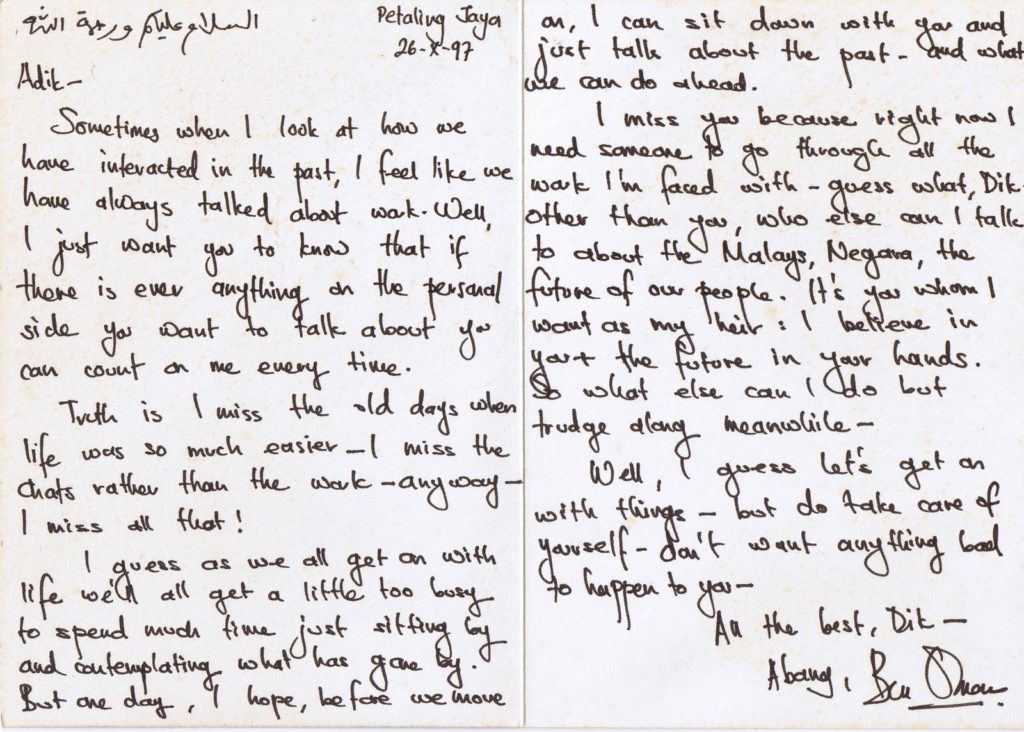 السلام عليكم ورحمة الله
Petaling Jaya
26-X-97
Adik-
Sometimes when I look at how we
have interacted in the past, I feel like we
have always talked about work. Well,
I just want you to know that if
there is ever anything on the personal
side you want to talk about you
can count on me every time.
Truth is I miss the old days when
life was so much easier - I miss the
chats rather than the work - anyway -
I miss all that!
I guess as we all get on with
life we'll all get a little too busy
to spend much time just sitting by
and contemplating what has gone by.
But one day, I hope, before we move
on, I can sit down with you and
just talk about the past - and what
we can do ahead.
I miss you because right now I
need someone to go through all the
work I'm faced with - guess what, Dik.
Other than you, who else can I talk
to about the Malays, Negara, the
future of our people. It's you whom I
want as my heir: I believe in
you + the future in your hands.
So what else can I do but
trudge along meanwhile -
Well, I guess let's get on
with things - but do take care of
yourself - don't want anything bad
to happen to you -
All the best, Dik -
Abang, Ben Omar